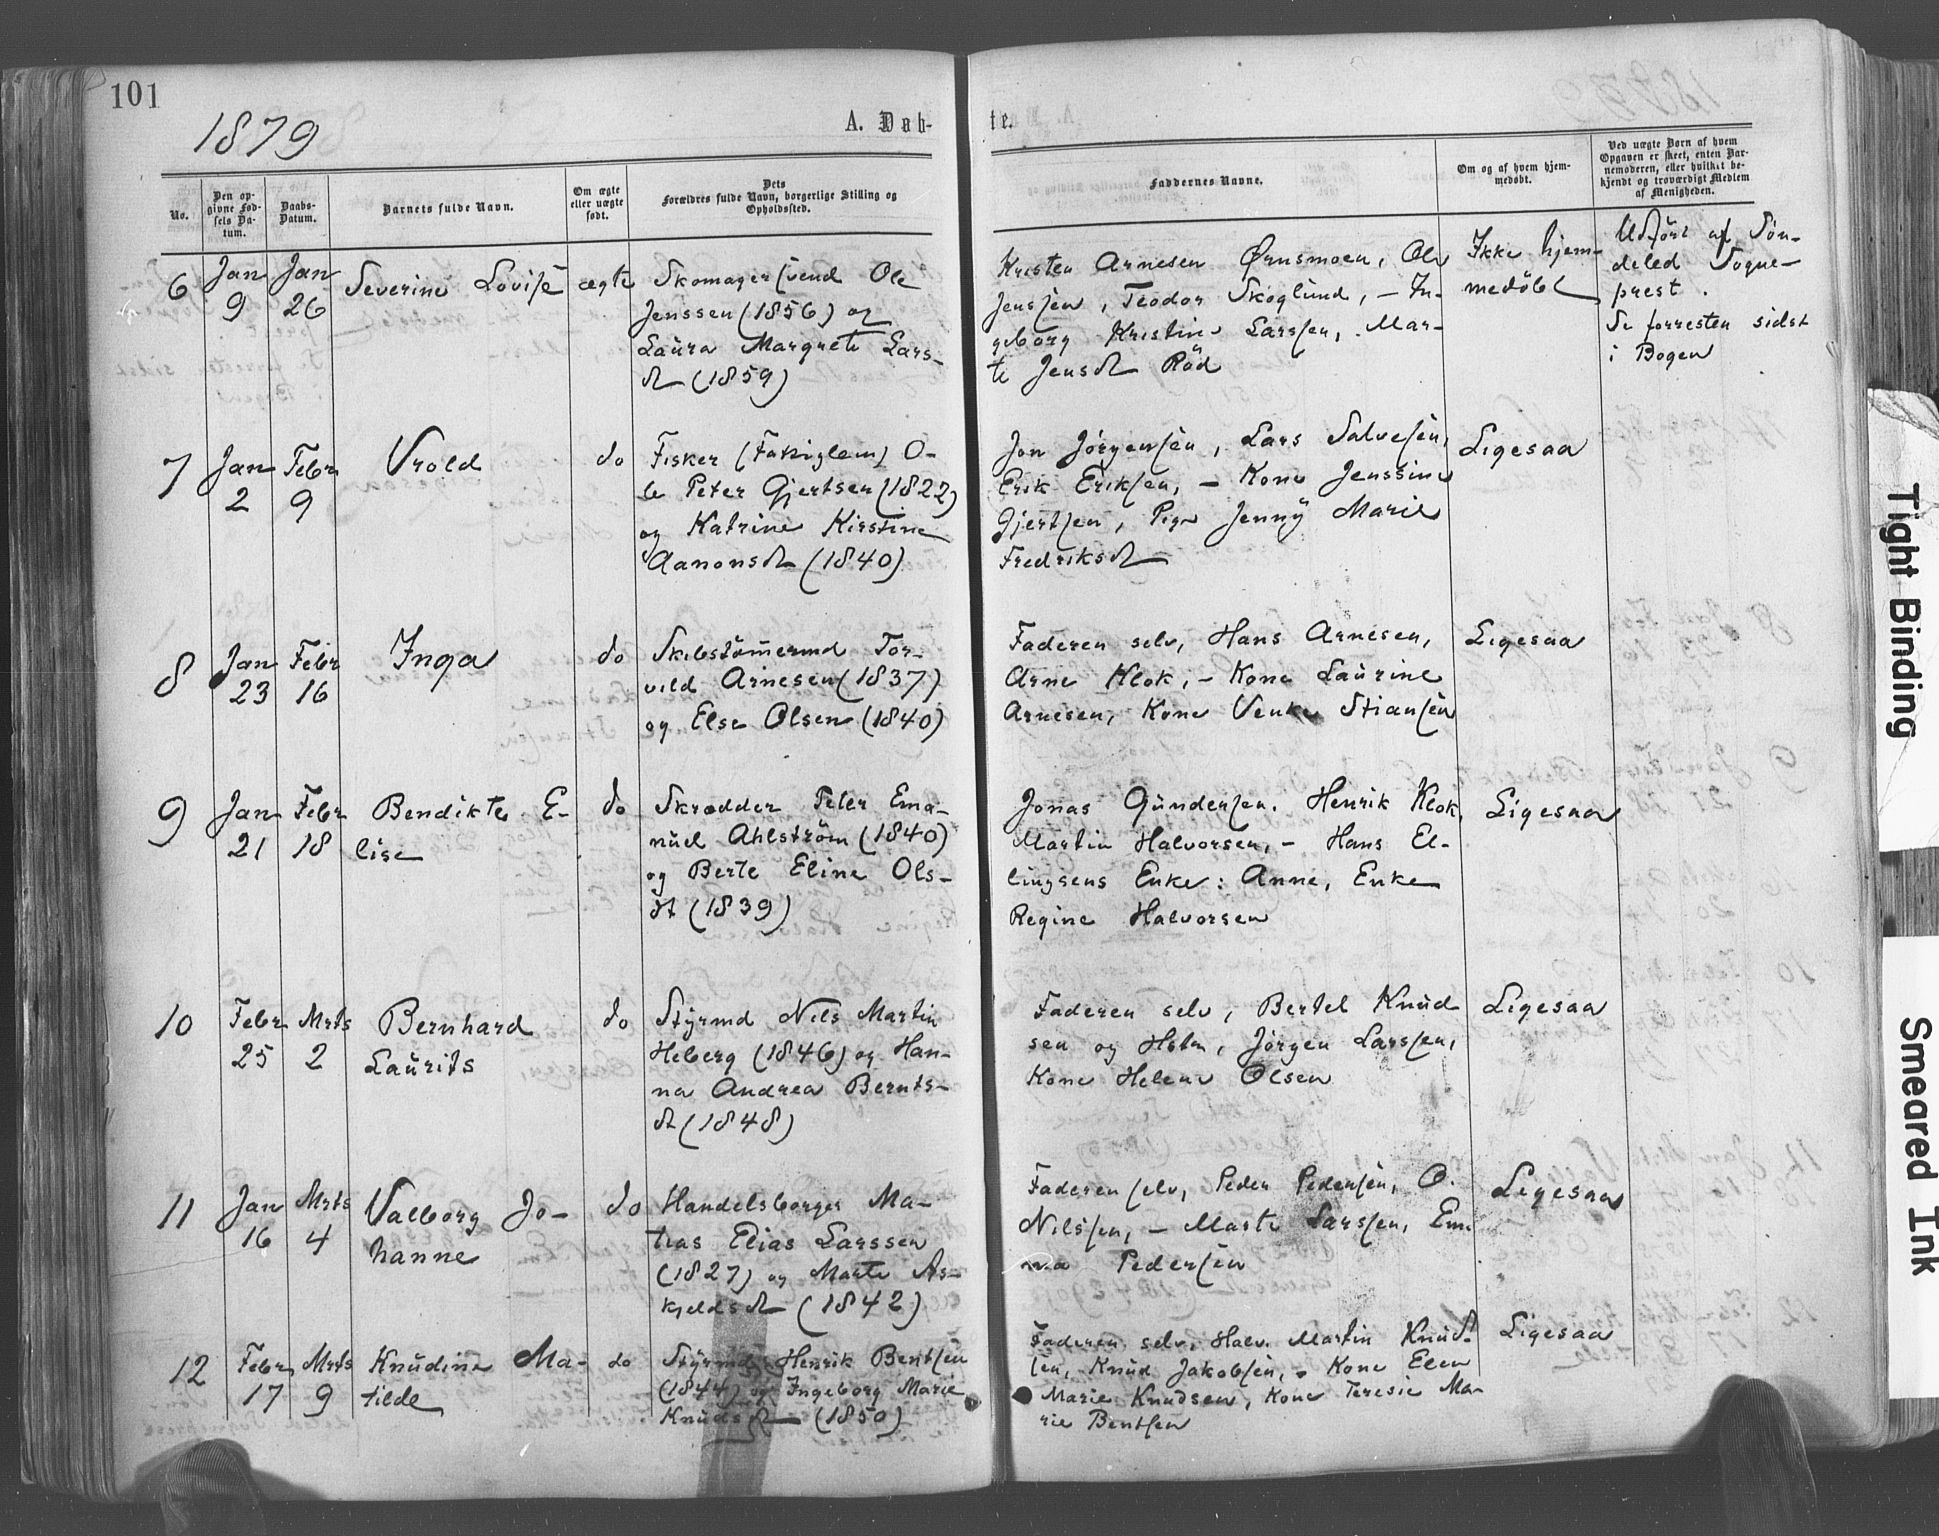 101
1879
A. Døb-
te.
No.
Den op-
givne Fød-
sels Da-
tum.
Daabs-
Datum.
Barnets fulde Navn.
Om ægte
eller uægte
født.
Dets
Forældres fulde Navn, borgerlige Stilling og
Opholdssted.
Faddernes Navne.
Om og af hvem hjem-
medøbt.
Ved uægte Børn af hvem
Opgaven er skeet, enten Bar-
nemoderen, eller hvilket be-
kjendt og troværdigt Medlem
af Menigheden.
6
Jan
9
Jan
26
Severine Lovise
ægte
Skomagersvend Ole
Jenssen (1856) og
Laura Margrete Lars-
dt (1859)
Kristen Arnesen Ørnsmoen, Ole
Jenssen, Teodor Skoglund, – In-
geborg Kristine Larssen, Mar-
te Jensdt Röd
Ikke hjem-
medöbt
Udfört af Søn-
deled Sogne-
prest.
Se forresten sidst
i Bogen
7
Jan
2
Febr
9
Vrold
do
Fisker (Fattiglem) O-
le Peter Gjertsen (1822)
og Katrine Kirstine
Aanonsdt (1840)
Jon Jörgensen, Lars Salvesen,
Erik Eriksen, – Kone Jenssine
Gjertsen, Pige Jenny Marie
Fredriksdt
Ligesaa
8
Jan
23
Febr
16
Inga
do
Skibstömermd Tor-
vild Arnesen (1837)
og Else Olsen (1840)
Faderen selv, Hans Arnesen,
Arne Klok, – Kone Laurine
Arnesen, Kone Venke Stiansen
Ligesaa
9
Jan
21
Febr
18
Bendikte E-
lise
do
Skrædder Peter Ema-
nuel Ahlström (1840)
og Berte Eline Ols-
dt (1839)
Jonas Gundersen, Henrik Klok,
Martin Halvorsen, – Hans El-
lingsens Enke: Anne, Enke
Regine Halvorsen
Ligesaa
10
Febr
25
Mrts
2
Bernhard
Laurits
do
Styrmd Nils Martin
Heberg (1846) og Han-
na Andrea Bernts-
dt (1848)
Faderen selv, Bertel Knud
sen og Hstr, Jörgen Larssen,
Kone Helene Olsen
Ligesaa
11
Jan
16
Mrts
4
Valborg Jo-
hanne
do
Handelsborger Ma-
tias Elias Larssen
(1827) og Marte As-
kjeldsdt (1842)
Faderen selv, Peder Pedersen, O.
Nilssen, – Marte Larssen, Em
ma Pedersen
Ligesaa
12
Febr
17
Mrts
9
Knudine Ma-
tilde
do
Styrmd Henrik Bentsen
(1844) og Ingeborg Marie
Knudsdt (1850)
Faderen selv, Halv. Martin Knud-
sen, Knud Jakobsen, – Kone Elen
Marie Knudsen, Kone Teresie Ma-
rie Bentsen
Ligesaa
Tight Binding
Smeared Ink